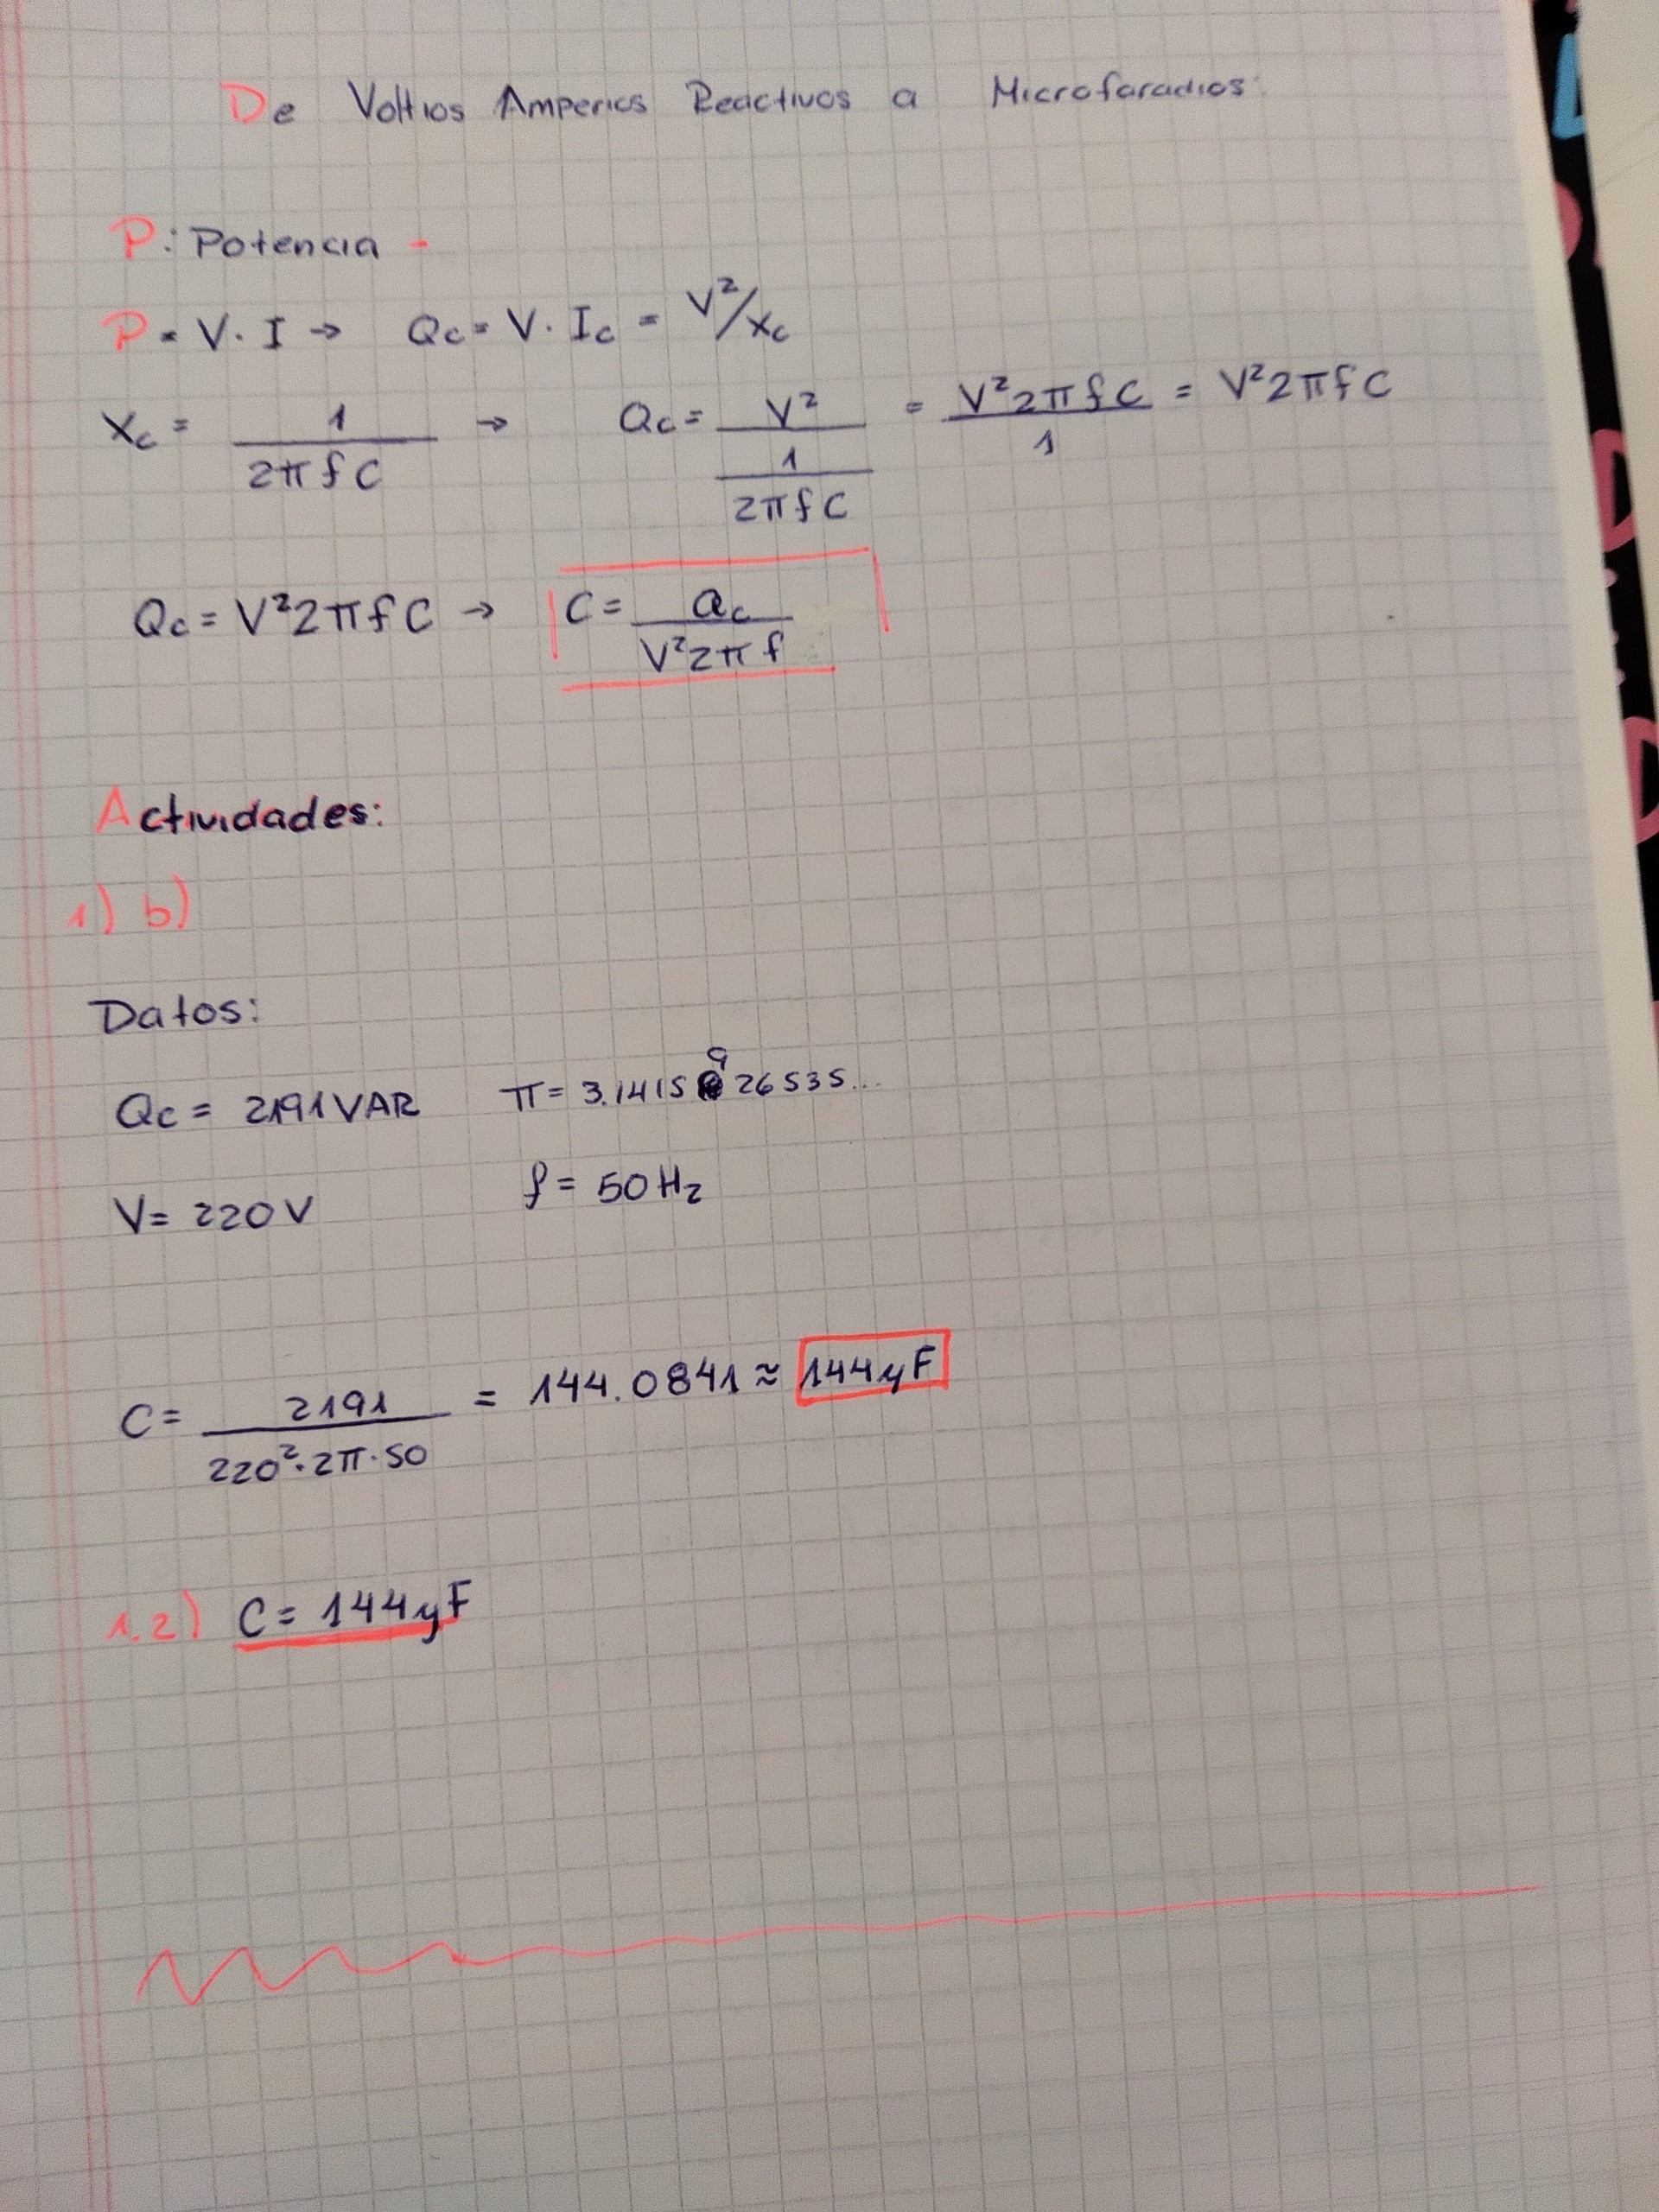 De Voltios Amperios Reactivos a Microfaradios:
P: Potencia -
P = V. I → Qc = V. Ic = V²/Xc
Xc = 1/2πfC → Qc = V²/(1/2πfC) = V²2πfC/1 = V²2πfC
Qc = V²2πfC → C = Qc/V²2πf
Actividades:
1) b)
Datos:
Qc = 2191 VAR π = 3.1415926535...
V = 220 V f = 50 Hz
C = 2191/220²·2π·50 = 144.0841 ≈ 144 μF
1.2) C = 144 μF